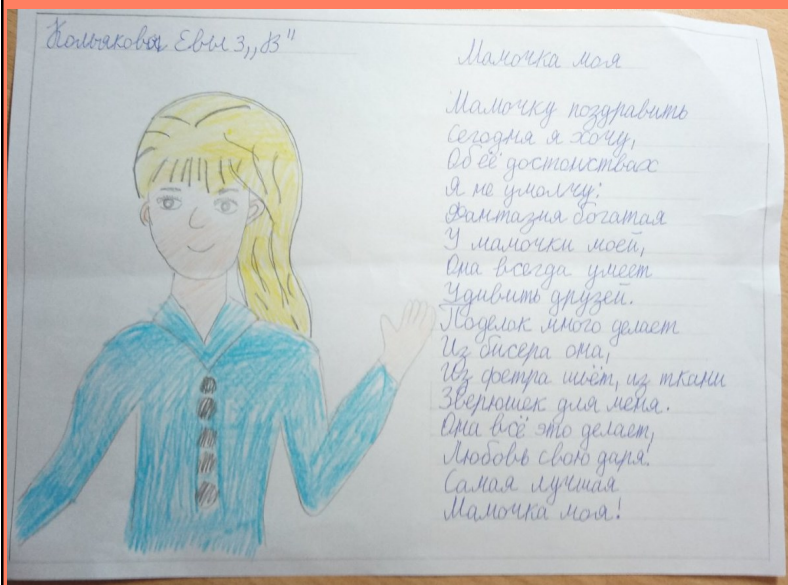 Кольяковой Евы 3 „В"
Мамочка моя
Мамочку поздравить
Сегодня я хочу,
Об её достоинствах
Я не умолчу:
Фантазия богатая
У мамочки моей,
Она всегда умеет
Удивить друзей.
Поделок много делает
Из бисера она,
Из фетра шьёт, из ткани
Зверюшек для меня.
Она всё это делает,
Любовь свою даря.
Самая лучшая
Мамочка моя!